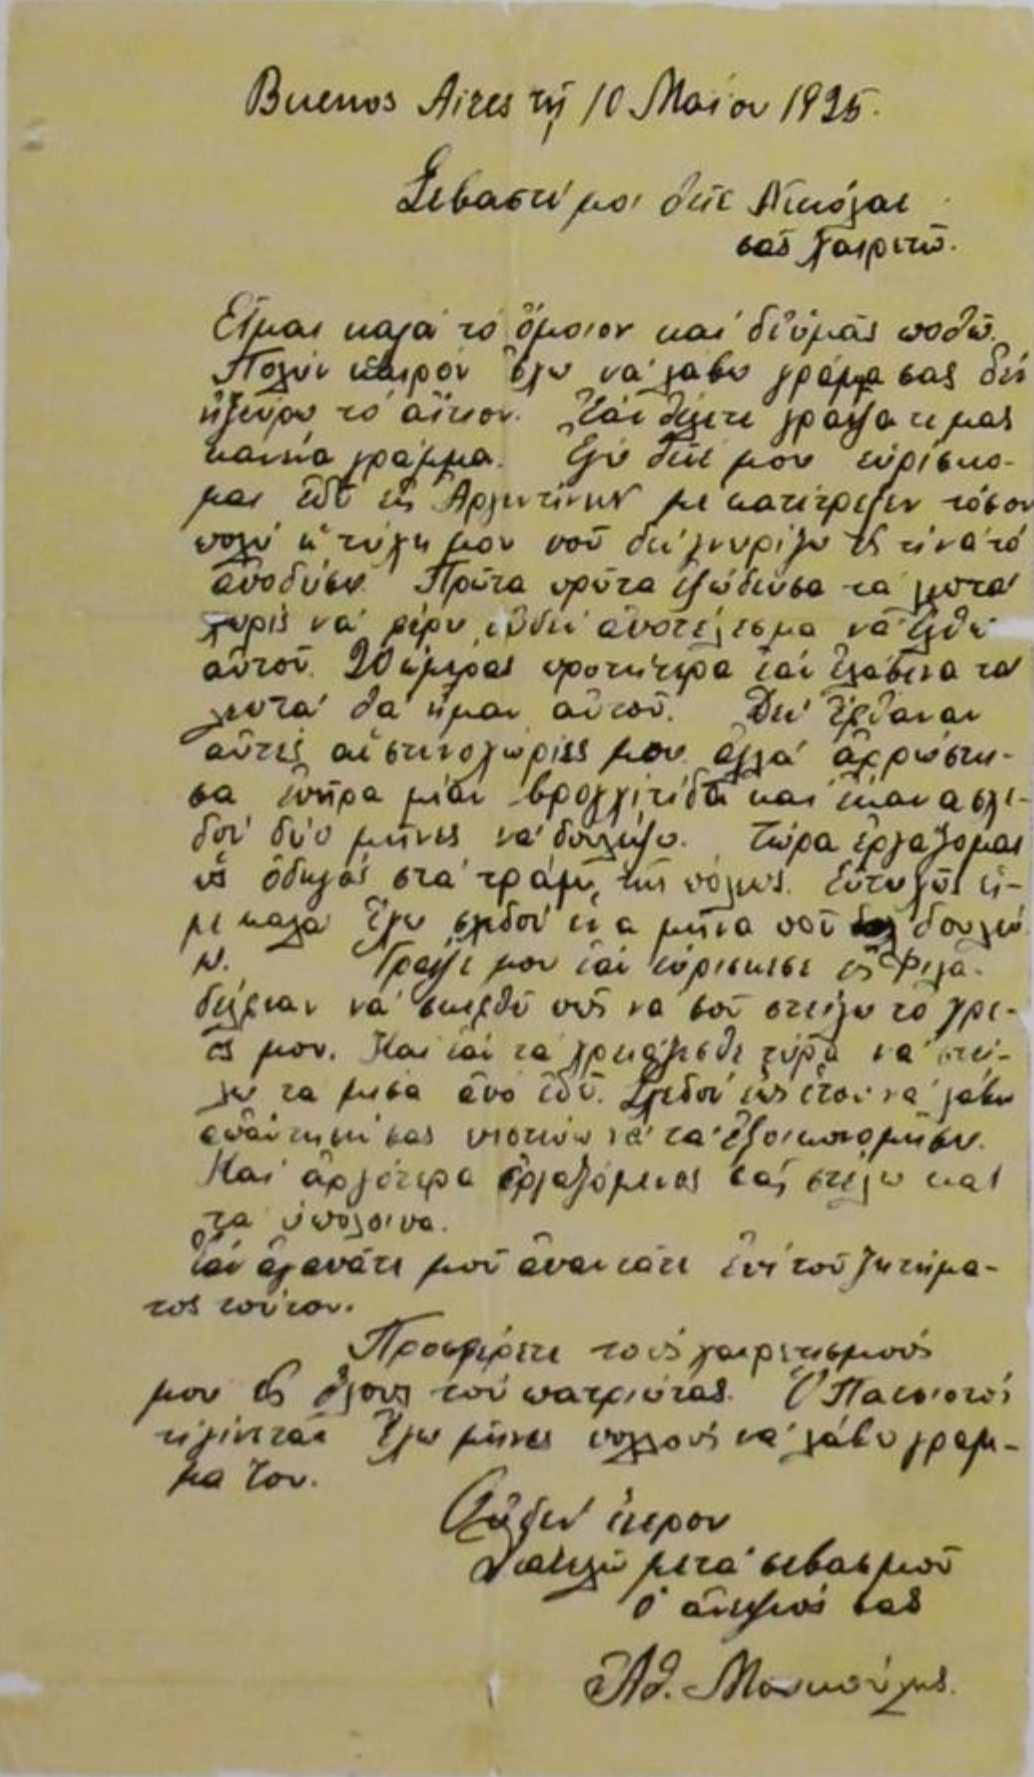 Buenos Aires τῇ 10 Μαΐου 1925.
Σεβαστέ μοι θεῖε Νικόλαε
σᾶς χαιρετῶ.
Εἶμαι καλά τό ὅμοιον καί δι' ὑμᾶς ποθῶ.
Πολύν καιρόν ἔχω νά λάβω γράμμα σας δέν
ἠξεύρω τό αἴτιον. Ἐάν θέλετε γράψατε μας
κανένα γράμμα. Ἐγώ θεῖε μου εὑρίσκο-
μαι ἐδῶ εἰς Ἀργεντίνην με κατέτρεξεν τόσον
πολύ ἡ τύχη μου πού δέν γνωρίζω εἰς τί νά τό
ἀποδώσω. Πρῶτα πρῶτα ἐξώδευσα τά λεπτά
χωρίς νά φέρω οὐδέν ἀποτέλεσμα νά ἔλθω
αὐτοῦ. 20 ἡμέρας προτήτερα ἐάν ἐλάβενα τά
λεπτά θά ἤμαν αὐτοῦ. Δέν ἔφθαναν
αὐτές αἱ στενοχώριες μου ἀλλά ἀρρώστη-
σα ἐπῆρα μίαν βρογχίτιδα καί ἔκανα σχε-
δόν δύο μῆνες νά δουλέψω. Τώρα ἐργάζομαι
ὡς ὁδηγός στά τράμ τῆς πόλεως. Εὐτυχῶς εἶ-
με καλά ἔχω σχεδόν ἕνα μῆνα πού δουλεύ
ω. Γράψε μου ἐάν εὑρίσκεσε εἰς Φιλα-
δέλφειαν νά σκεφθῶ πῶς νά σοῦ στείλω τό χρέ-
ος μου. Καί ἐάν τά χρειάζεσθε τώρα νά στεί-
λω τα μισά ἀπό ἐδῶ. Σχεδόν ἕως ὅτου νά λάβω
ἀπάντησή σας πιστεύω νά τά ἐξοικονομήσω.
Καί ἀργότερα ἐργαζόμενος σᾶς στέλω καί
τα ὑπόλοιπα.
Ἐάν ἀγαπᾶτε μοῦ ἀπαντᾶτε ἐπί τοῦ ζητήμα-
τος τούτου.
Προσφέρετε τούς χαιρετισμούς
μου εἰς ὅλους τού πατριώτας. Ὁ
τί γίνεται ἔχω μῆνες πολλούς νά λάβω γράμ-
μα του.
Οὐδέν ἕτερον
Διατελῶ μετά σεβασμοῦ
ὁ ἀνεψιός σας
Ἀθ.